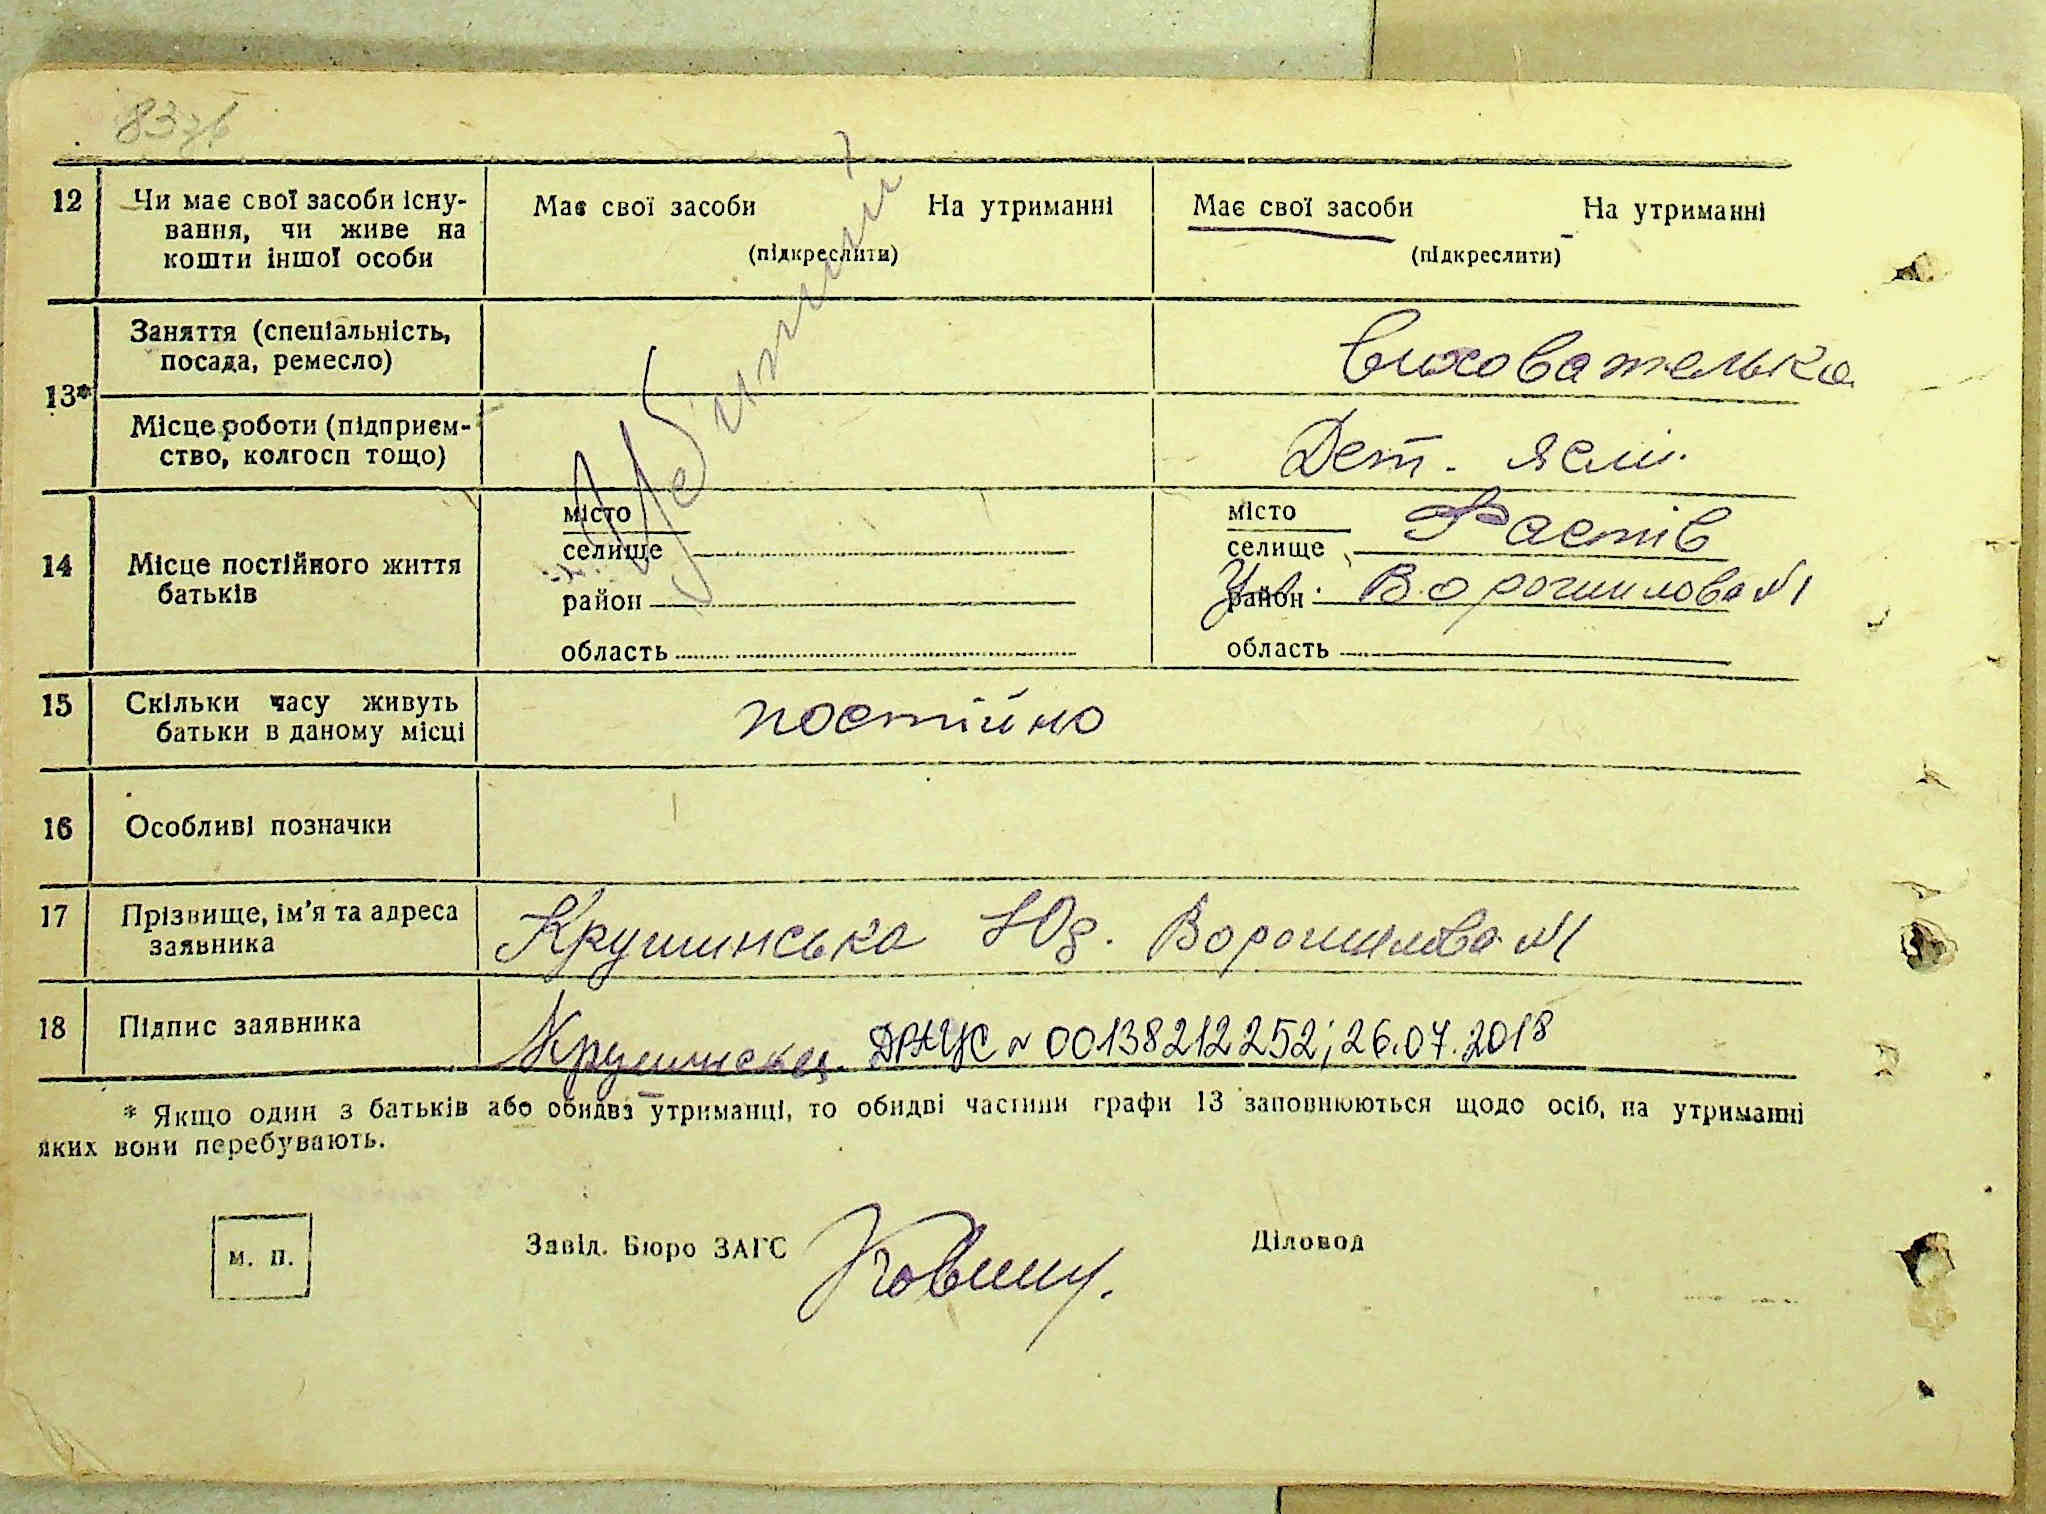 83 зв
12 Чи має свої засоби існу-
вання, чи живе на
кошти іншої особи
Має свої засоби На утриманні
(підкреслити)
Має свої засоби На утриманні
(підкреслити)
13*
Заняття (спеціальність,
посада, ремесло)
Вихователька
Місце роботи (підприєм-
ство, колгосп тощо)
Дет. яслі.
14 Місце постійного життя
батьків
місто
селище
район
область
місто
селище
Фастів
район
Ворошилова №1
область
15 Скільки часу живуть
батьки в даному місці
постійно
16 Особливі позначки
17 Прізвище, ім'я та адреса
заявника
Крушинська Юз. Ворошилова №1
18 Підпис заявника
ДРАЦС № 00138212252; 26.07.2018
* Якщо один з батьків або обидва утриманці, то обидві частини графи 13 заповнюються щодо осіб, на утриманні
яких вони перебувають.
м. п.
Завід. Бюро ЗАГС
Діловод